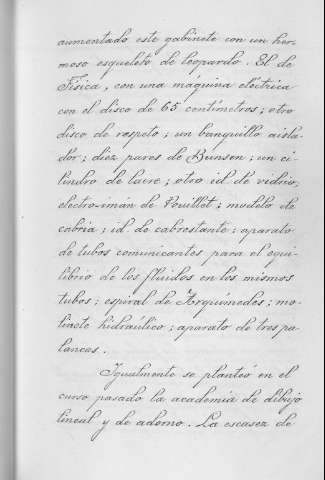 aumentado este gabinete con un her-
moso esqueleto de leopardo. El de
Física, con una máquina eléctrica
con el disco de 65 centímetros; otro
disco de respeto; un banquillo aisla-
dor; diez pares de Bunsen; un ci-
lindro de laire; otro id. de vidrio;
electro-imán de Pouillet; modelo de
cabria; id. de cabrestante; aparato
de tubos comunicantes para el equi-
librio de los fluidos en los mismos
tubos; espiral de Arquímedes; mo-
linete hidráulico; aparato de tres pa-
lancas.
Igualmente se planteó en el
curso pasado la academia de dibujo
lineal y de adorno. La escasez de